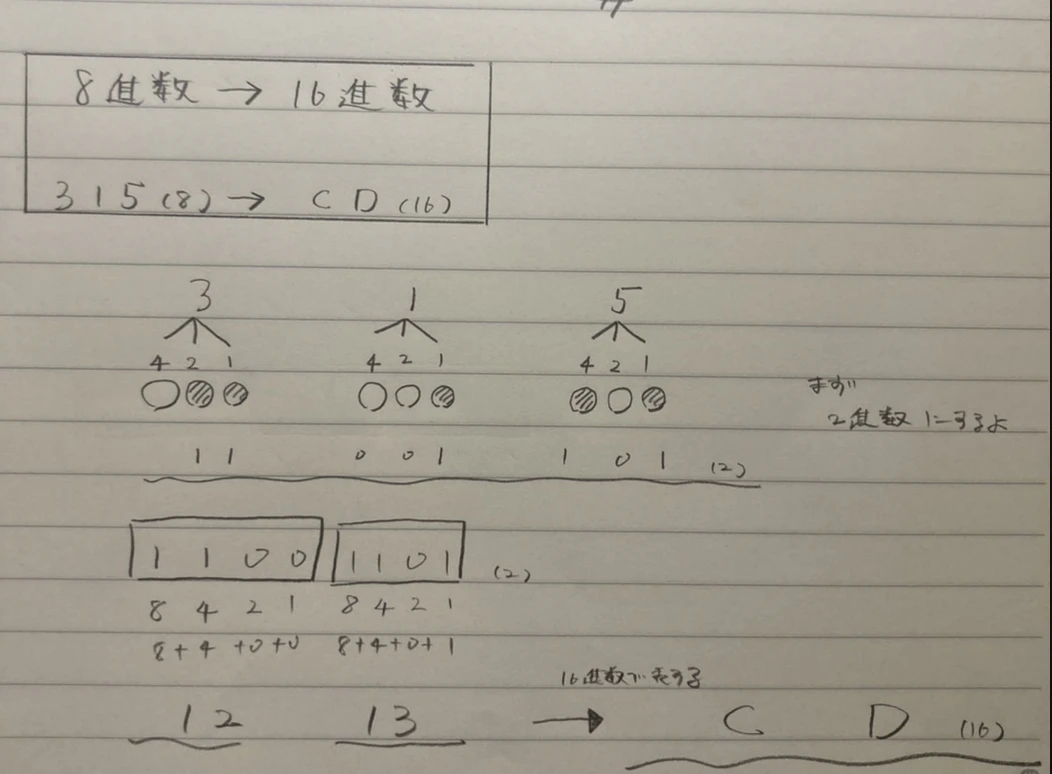 8進数 → 16進数
315(8) → CD(16)
3 1 5
4 2 1 4 2 1 4 2 1
まず
2進数にするよ
1 1 0 0 1 1 0 1 (2)
1 1 0 0 1 1 0 1 (2)
8 4 2 1 8 4 2 1
8+4+0+0 8+4+0+1
16進数で表する
12 13 → C D (16)